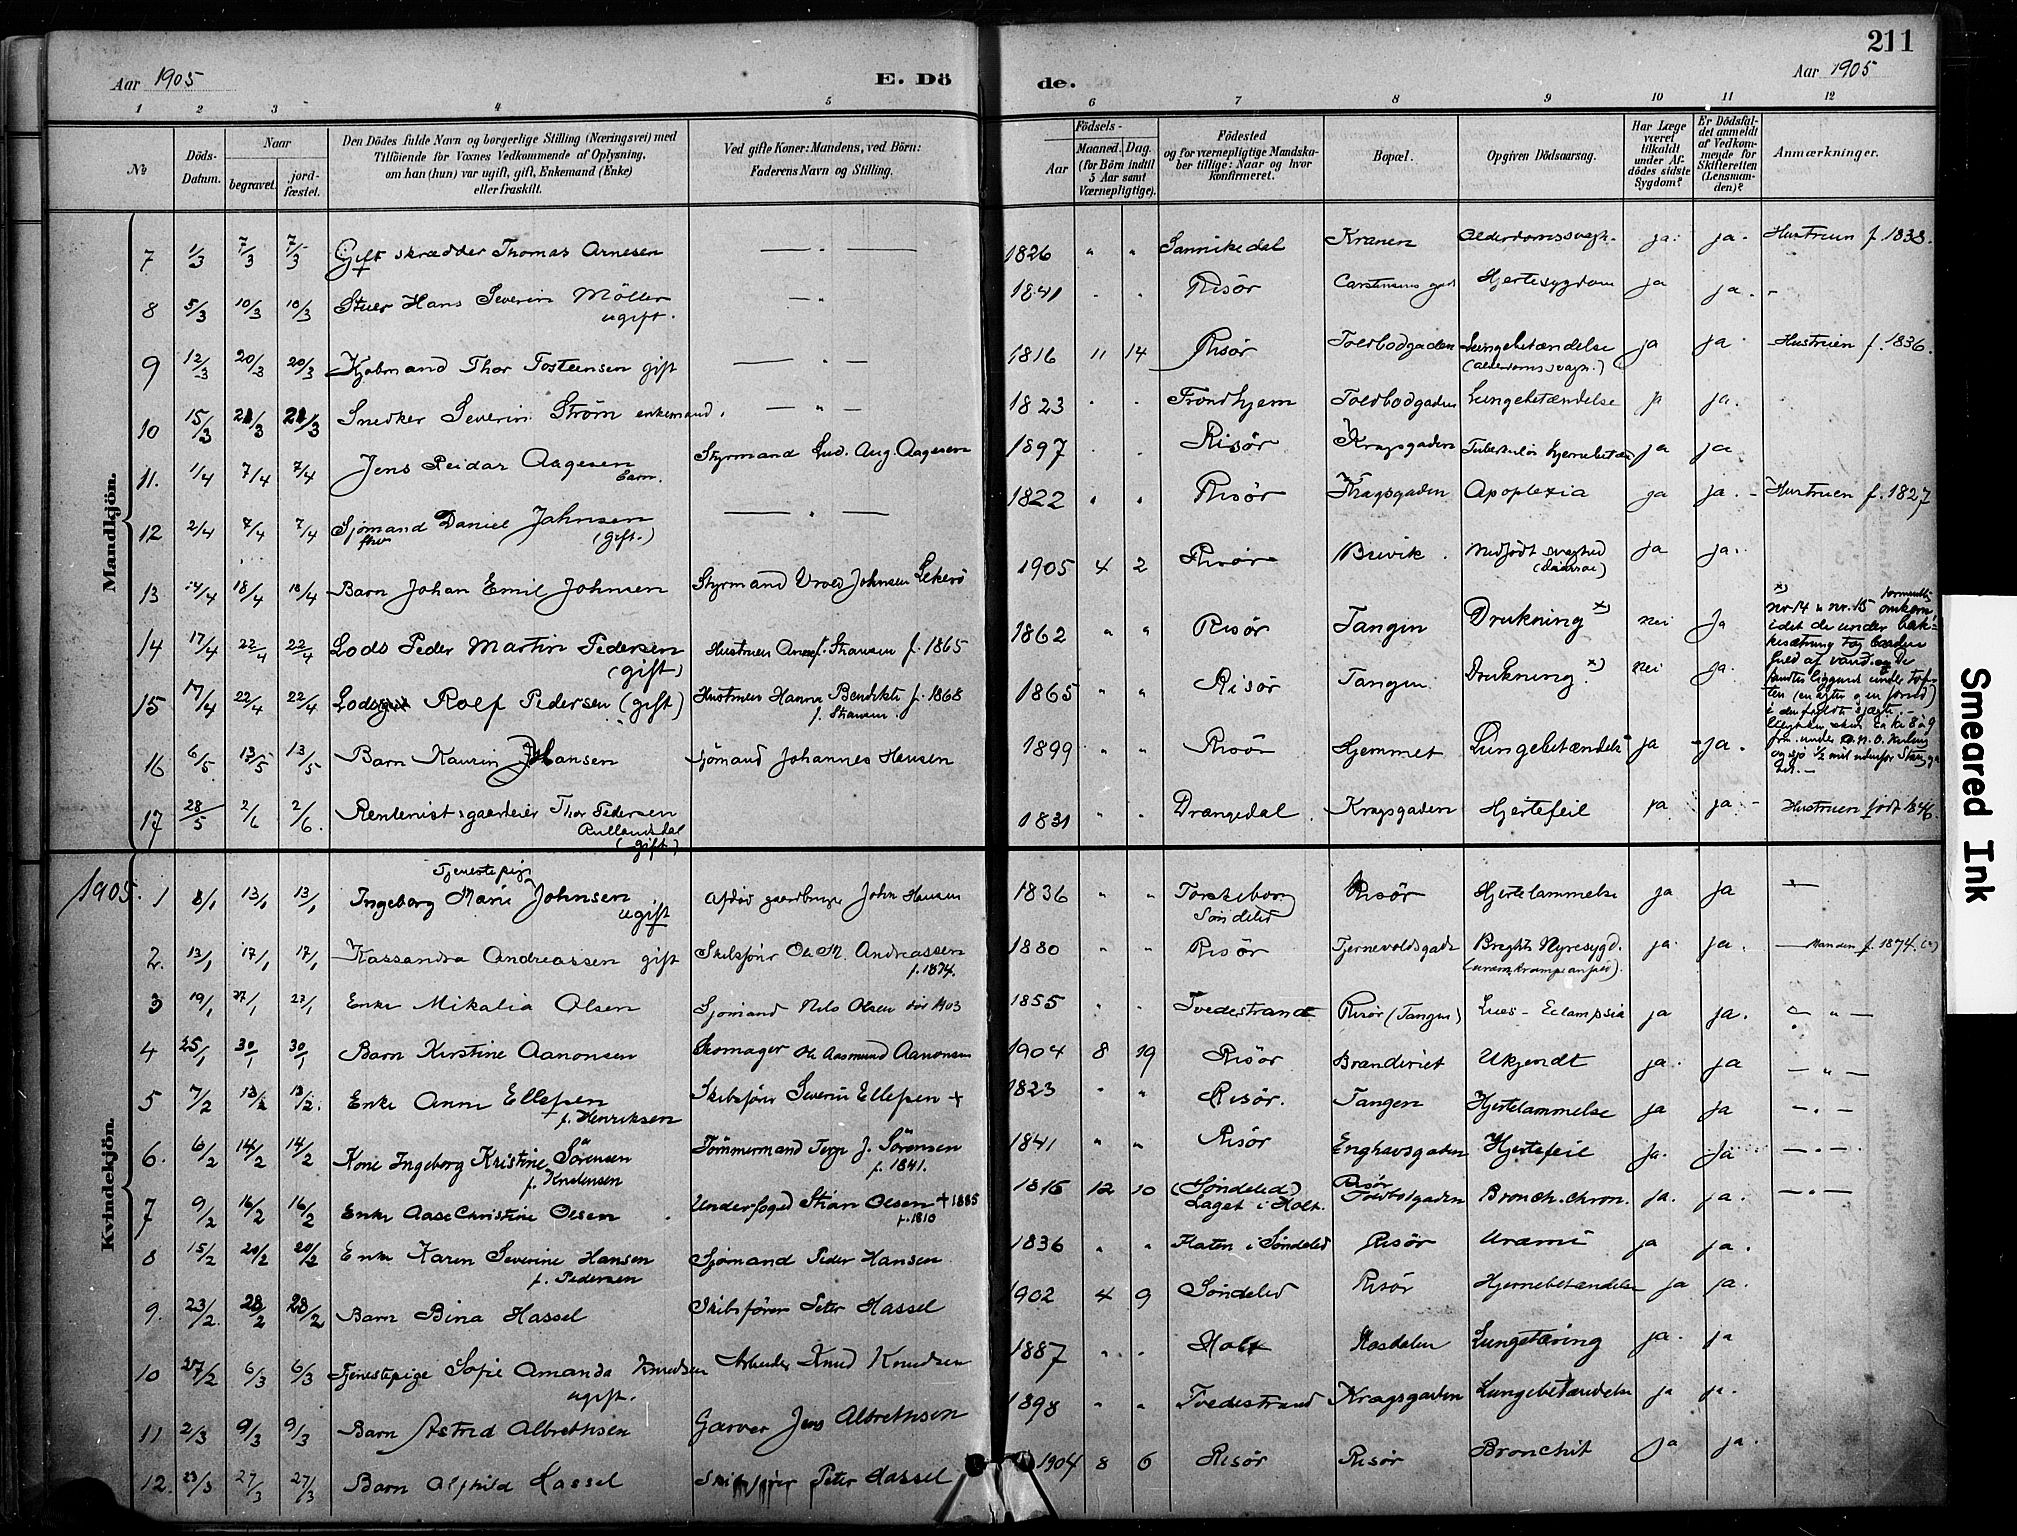 211
Aar 1905
E. Dö
de.
Aar 1905
1 2 3 4 5 6 7 8 9 10 11 12
No
Döds-Datum.
Naar
begravet.
jord-fæstet.
Den Dödes fulde Navn og borgerlige Stilling (Næringsvei) med
Tilföiende for Voxnes Vedkommende af Oplysning,
om han (hun) var ugift, gift, Enkemand (Enke)
eller fraskilt.
Ved gifte Koner: Mandens, ved Börn:
Faderens Navn og Stilling.
Födsels-
Aar
Maaned. Dag.
(for Börn indtil
5 Aar samt
Værnepligtige).
Födested
og for værnepligtige Mandska-
ber tillige: Naar og hvor
konfirmeret.
Bopæl.
Opgiven Dödsaarsag.
Har Læge
været
tilkaldt
under Af-
dödes sidste
Sygdom?
Er Dödsfal-
det anmeldt
af Vedkom-
mende for
Skifteretten
(Lensman-
den)?
Anmærkninger.
Mandkjön.
7 1/3 7/3 7/3 Gift skrædder Thomas Arnesen — " — 1826 " " Sannikedal Kranen Alderdomssvagh. ja. ja. Hustruen f. 1838.
8 5/3 10/3 10/3 Stuer Hans Severin Möller — " 1841 " " Risör Carstensens gad Hjertesygdom ja ja. -
ugift.
9 12/3 20/3 20/3 Kjöbmand Thor Tostensen gift — " — 1816 11 14 Risör Toldbodgaden Lungebetændelse ja ja. Hustruen f. 1836.
(Alderdomssvagh.)
10 15/3 21/3 21/3 Snedker Severin Ström enkemand. — " — 1823 " " Trondhjem Toldbodgaden Lungebetændelse ja ja.
11. 1/4 7/4 7/4 Jens Peidar Aagesen Styrmand Lud. Aug. Aagesen 1897 " " Risör Kragsgaden Tuberkulös hjernebetæn ja ja
barn.
12 2/4 7/4 7/4 Sjømand Daniel Jahnsen — " — 1822 " " Risör Kragsgaden Apoplexia ja ja. - Hustruen f. 1827
(gift.)
13 14/4 18/4 18/4 Barn Johan Emil Johnsen Styrmand Johnsen 1905 4 2 Risör Brevik. Medfödt svaghed ja ja.
14 17/4 22/4 22/4 Lods Peder Martin Pedersen Hustruen f. 1865 1862 " " Risör Tangen Drukning x) nei Ja
(gift)
15 17/4 22/4 22/4 Lods Rolf Pedersen (gift) Hustruen Hanna Bendikte f. 1868 1865 " " Risör Tangen Drukning. x) nei ja.
x)
nr. 14 & nr. 15 omkom
idet de under
baaden
fuld af vand. De
fandtes liggende under tof-
ten (en agter & en forud)
16 6/5 13/5 13/5 Barn Hansen Sjömand Johannes Hansen 1899 " " Risör Hjemmet Lungebetændels ja - ja.
17 28/5 2/6 2/6. Rentenist & gaardeier Thor Pedersen 1831 " " Drangedal Kragsgaden Hjertefeil ja ja - Hustruen född 1846.
(gift)
Kvindekjön.
1905. 1 8/1 13/1 13/1 Tjenestepige
Ingeborg Marie Johnsen Afdöd gaardbruger John Hansen 1836 " " Torskeborg Risör Hjertelammelse ja ja —
ugift Söndeled
2. 13/1 17/1 17/1 Kassandra Andreassen gift Skibsförer Ole M. Andreassen 1880 " " Risör Tjernevoldsgade Brights Nyresygd. ja. ja. — Manden f. 1874.
f. 1874.
3 19/1 27/1 27/1 Enke Mikalia Olsen Sjömand Nils Olsen död 1903 1855 " " Tvedestrand Risör (Tangen) Lues - Eclampsia ja ja. — " —
4 25/1 30/1 30/1 Barn Kirstine Aanonsen Skomager Ole Aasmund Aanonsen 1904 8 19 Risör Branderiet Ukjendt ja. ja — " —
5 7/2 13/2 13/2. Enke Anne Ellefsen Skibsförer Severin Ellefsen + 1823 " " Risör. Tangen Hjertelammelse ja ja — " —
f. Henriksen
6. 6/2 14/2 14/2 Kone Ingeborg Kristine Sörensen Tömmermand Terje J. Sörensen 1841 " " Risör Enghavsgaden Hjertefeil ja. ja — " —
f. Knudsen f. 1841.
7 9/2 16/2 16/2 Enke Aase Christine Olsen Underfoged Stian Olsen + 1885 1816 12 10 (Söndeled) Risör Bronch. chron. ja. ja. — " —
f. 1810 Laget i Holt. Toldbodgaden
8 15/2 20/2 20/2 Enke Karen Severine Hansen Sjömand Peder Hansen 1836 " " Flaten i Söndeled Risör Uræmi ja ja.
f. Pedersen
9. 23/2 28/2 28/2 Barn Bina Hassel Skibsförer Peter Hassel 1902 4 9 Söndeled Risör Hjernebetændelse ja ja.
10 27/2 6/3 6/3 Tjenestepige Sofie Amanda Knudsen Arbeider Knud Knudsen 1887 " " Holt Lungetæring ja. ja
ugift.
11 2/3 9/3 9/3 Barn Astrid Albrethsen Garver Jens Albrethsen 1898 " " Tvedestrand Kragsgaden Lungebetændelse ja ja.
12. 23/3 27/3 27/3 Barn Alfhild Hassel Skibsförer Peter Hassel 1904 8 6 Risör Risör Bronchit ja ja.
Smeared Ink